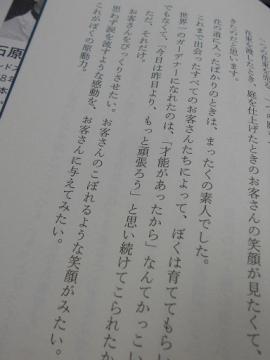 仕事を渡すとき、庭を仕上げたときのお客さんの笑顔が見たくて、
きたのだと思います。
花の道に入ったばかりのときは、まったくの素人でした。
これまで出会ったすべてのお客さんたちによって、ぼくは育ててもら
世界一のガーデナーになれたのは、「才能があったから」なんてかっこい
でもなくて、「今日は昨日より、もっと頑張ろう」と思い続けてこられたか
ただ、それだけ。
お客さんをびっくりさせたい。お客さんのこぼれるような笑顔がみたい。
思わず涙を流すような感動を、お客さんに与えてみたい。
これがぼくの原動力。
石原